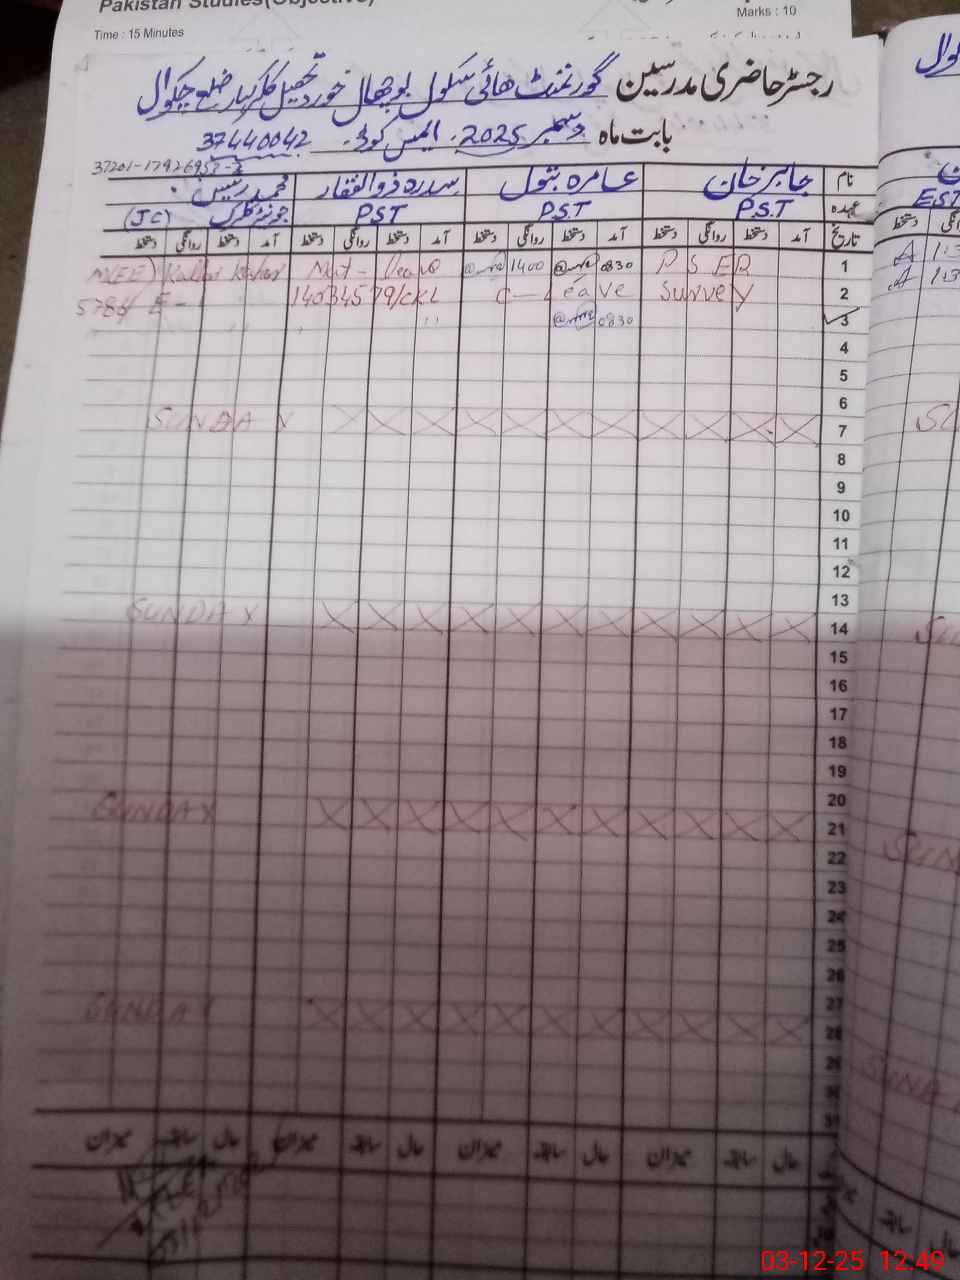 Pakistan Studies(Objective)
Marks : 10
Time : 15 Minutes
رجسٹر حاضری مدرسین گورنمنٹ ھائی سکول بوچھال خورد تحصیل کلرکہار ضلع چکوال
بابت ماہ دسمبر 2025 ایمس کوڈ 37440042
نام جابر خان عامرہ بتول سدرہ ذوالفقار محمد رئیس
عہدہ P.S.T P.S.T PST جونیئر کلرک (JC)
تاریخ آمد دستخط روانگی دستخط آمد دستخط روانگی دستخط آمد دستخط روانگی دستخط آمد دستخط روانگی دستخط
EST
1 PSER 0830 1400 Mat- Kallar Kahar
2 Survey C-Leave
3 0830
4
5
6
7 SUNDAY
8
9
10
11
12
13
14 SUNDAY
15
16
17
18
19
20
21 SUNDAY
22
23
24
25
26
27
28 SUNDAY
29
30
31
حال سابقہ میزان حال سابقہ میزان حال سابقہ میزان حال سابقہ میزان
03-12-25 12:49